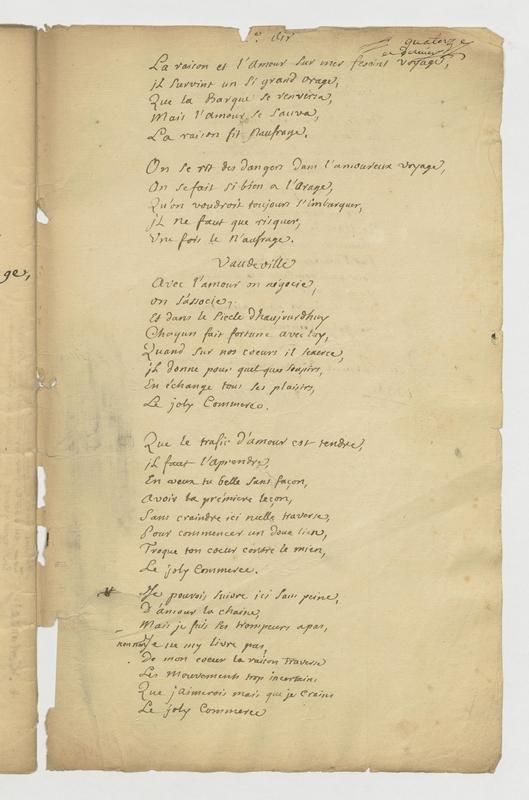 quatorze
et dernier
La raison et l'amour sur mer fesant voyage,
jl survint un si grand orage,
Que la Barque se renversa,
Mais l'amour se sauva,
La raison fit naufrage.
On se rit des dangers dans l'amoureux voyage,
On se fait si bien a l'orage,
Qu'on voudroit toujours s'embarquer,
jl ne faut que risquer,
Une fois le Naufrage.
Vaudeville
Avec l'amour on négocie,
on s'associe,
Et dans le siecle d'haujourdhuy
Chaqun fait fortune avec luy,
Quand sur nos coeurs il s'exerce,
jl donne pour quelques soupirs,
En échange tous ses plaisirs,
Le joly Commerce.
Que le trafic d'amour est tendre,
jl faut l'aprendre,
En veux tu belle sans façon,
avoir ta première leçon,
Sans craindre ici nulle traverse,
Pour commencer un doux lien,
Troque ton coeur contre le mien,
Le joly Commerce.
Je pouvois suivre ici sans peine,
D'amour la chaine,
Mais je fuis ses trompeurs apas,
non non Je ne my livre pas,
De mon coeur la raison traverse
Les Mouvements trop incertains
Que j'aimerois mais que je crains
Le joly Commerce
ge,